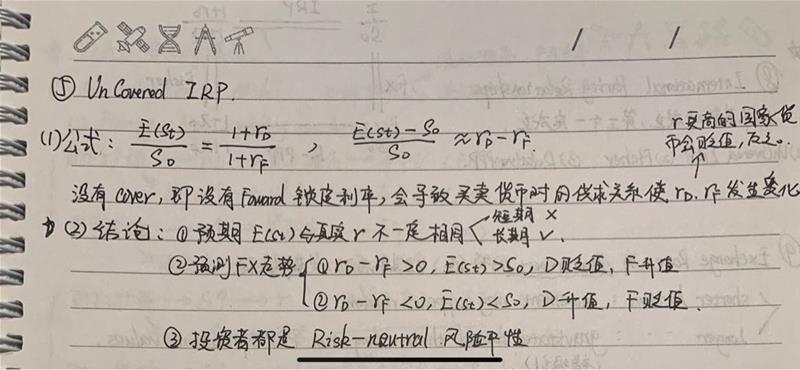 ⑤ UnCovered IRP.
(1)公式: E(St)/S0 = (1+rD)/(1+rF) , (E(St)-S0)/S0 ≈ rD-rF.
r更高的国家货
币会贬值,反之。
没有cover,即没有Foward锁定利率,会导致买卖货币时的供求关系使rD.rF发生变化
(2)结论: ①预期E(St)与真实r不一定相同 短期 ×
长期 ✓.
②预测FX走势 ①rD-rF>0, E(St)>S0, D贬值, F升值
②rD-rF<0, E(St)<S0, D升值, F贬值.
③投资者都是 Risk-neutral 风险中性